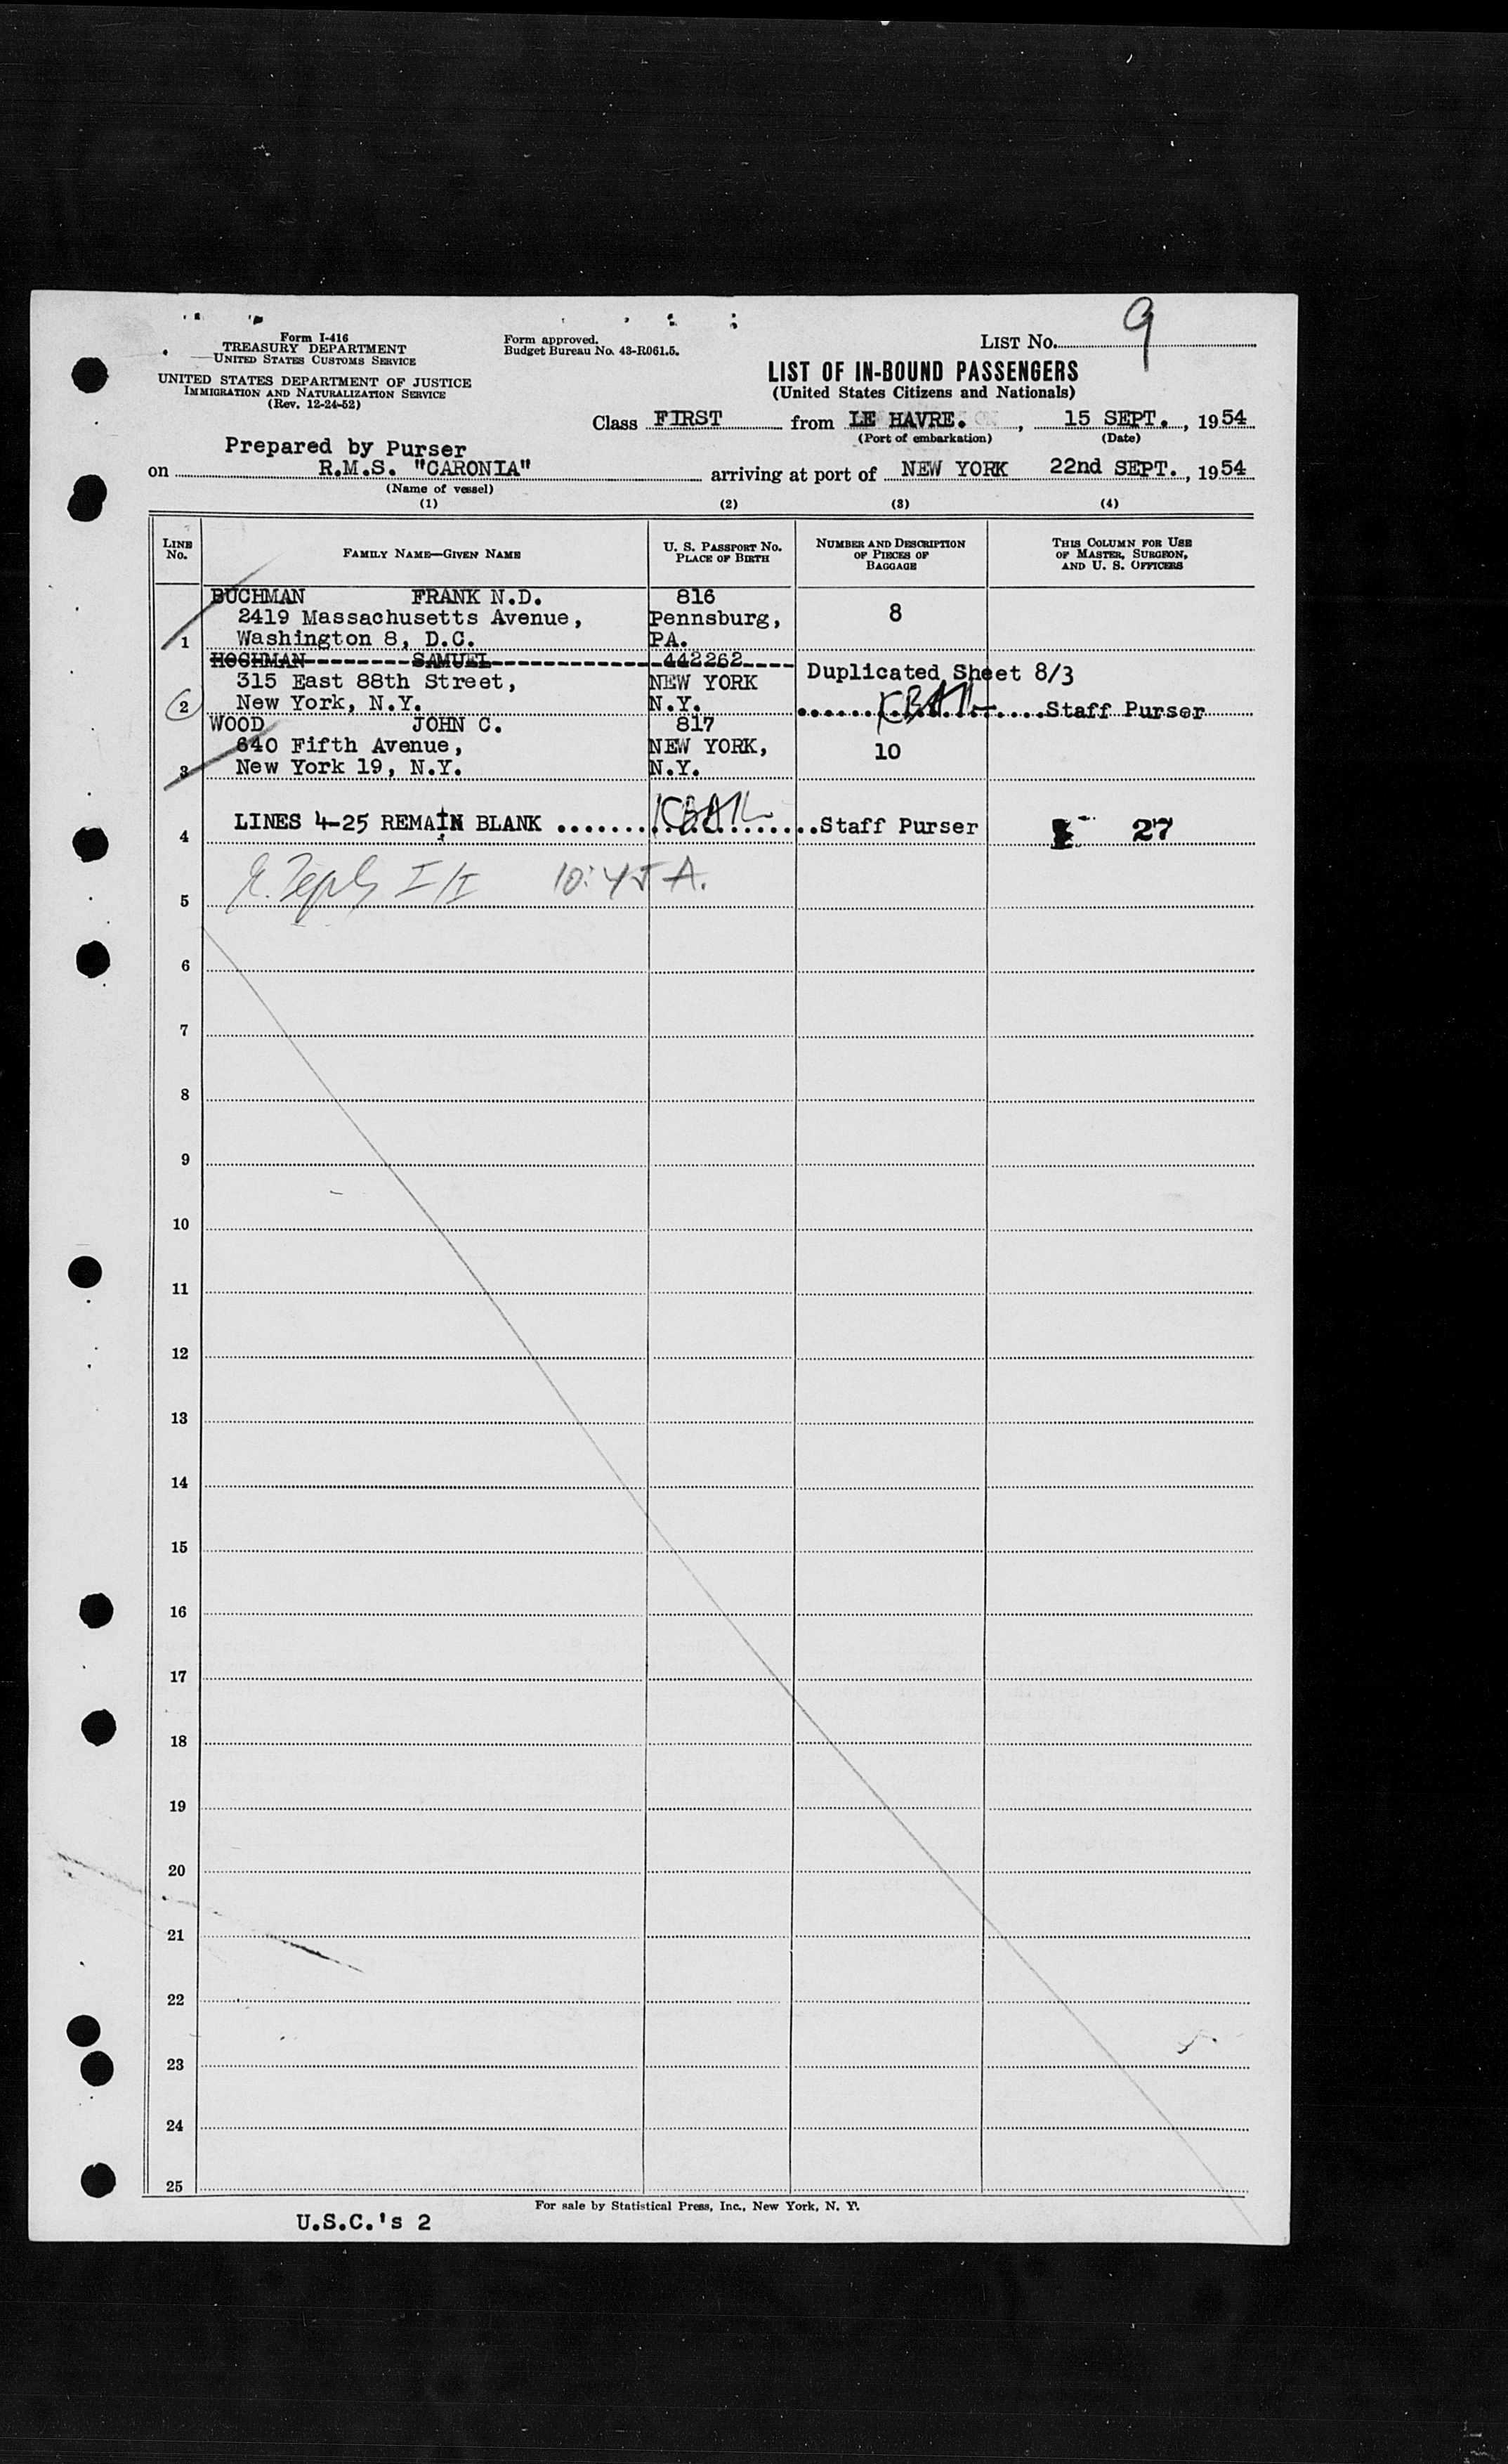 9
Form I-416
TREASURY DEPARTMENT
UNITED STATES CUSTOMS SERVICE
UNITED STATES DEPARTMENT OF JUSTICE
IMMIGRATION AND NATURALIZATION SERVICE
(Rev. 12-24-52)
Form approved.
Budget Bureau No. 43-R061.5.
LIST No.
LIST OF IN-BOUND PASSENGERS
(United States Citizens and Nationals)
Class FIRST from LE HAVRE. , 15 SEPT. , 1954
(Port of embarkation) (Date)
Prepared by Purser
on R.M.S. "CARONIA" arriving at port of NEW YORK 22nd SEPT. , 1954
(Name of vessel)
(1) (2) (3) (4)
LINE No. FAMILY NAME—GIVEN NAME U. S. PASSPORT No. PLACE OF BIRTH NUMBER AND DESCRIPTION OF PIECES OF BAGGAGE THIS COLUMN FOR USE OF MASTER, SURGEON, AND U. S. OFFICERS
BUCHMAN FRANK N.D. 816
2419 Massachusetts Avenue, Pennsburg, 8
1 Washington 8, D.C. PA.
HOCHMAN--------SAMUEL------------442262----
315 East 88th Street, NEW YORK Duplicated Sheet 8/3
2 New York, N.Y. N.Y. Staff Purser
WOOD JOHN C. 817
640 Fifth Avenue, NEW YORK, 10
3 New York 19, N.Y. N.Y.
4 LINES 4-25 REMAIN BLANK Staff Purser 27
5 I/I 10:45 A.
6
7
8
9
10
11
12
13
14
15
16
17
18
19
20
21
22
23
24
25
For sale by Statistical Press, Inc., New York, N. Y.
U.S.C.'s 2